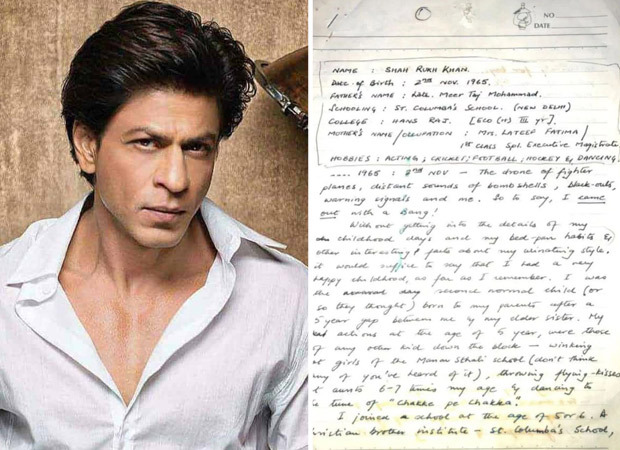 NO
DATE
NAME : SHAH RUKH KHAN.
Date of Birth : 2ND NOV. 1965.
FATHER'S NAME : Late. Meer Taj Mohammad.
SCHOOLING : ST. COLUMBA'S SCHOOL. (NEW DELHI)
COLLEGE : HANS RAJ. [ECO (H) III yr].
MOTHER'S NAME / OCCUPATION : MRS. LATEEF FATIMA /
1st CLASS Spl. Executive Magistrate
HOBBIES : ACTING ; CRICKET ; FOOTBALL ; HOCKEY & DANCING.
.... 1965 : 2ND NOV — The drone of fighter
planes, distant sounds of bombshells, black-outs,
warning signals and me. So to say, I came
out with a bang!
Without getting into the details of my
childhood days and my bed-pan habits &
other interesting facts about my urinating style.
it would suffice to say that I had a very
happy childhood, as far as I remember. I was
the second normal child (or
so they thought) born to my parents after a
5 year gap between me & my elder sister. My
actions at the age of 5 year, were those
of any other kid down the block — winking
at girls of the Manav Sthali school (don't think
any of you've heard of it), throwing flying-kisses
at aunts 6-7 times my age & dancing to
the tune of "Chakke pe chakka."
I joined a school at the age of 5 or 6. A
Christian brother institute — St. Columba's School,